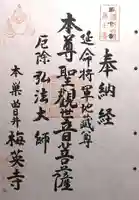 奉納経
延命将軍地蔵尊
本尊聖観世音菩薩
厄除弘法大師
木曽曽井梅英寺